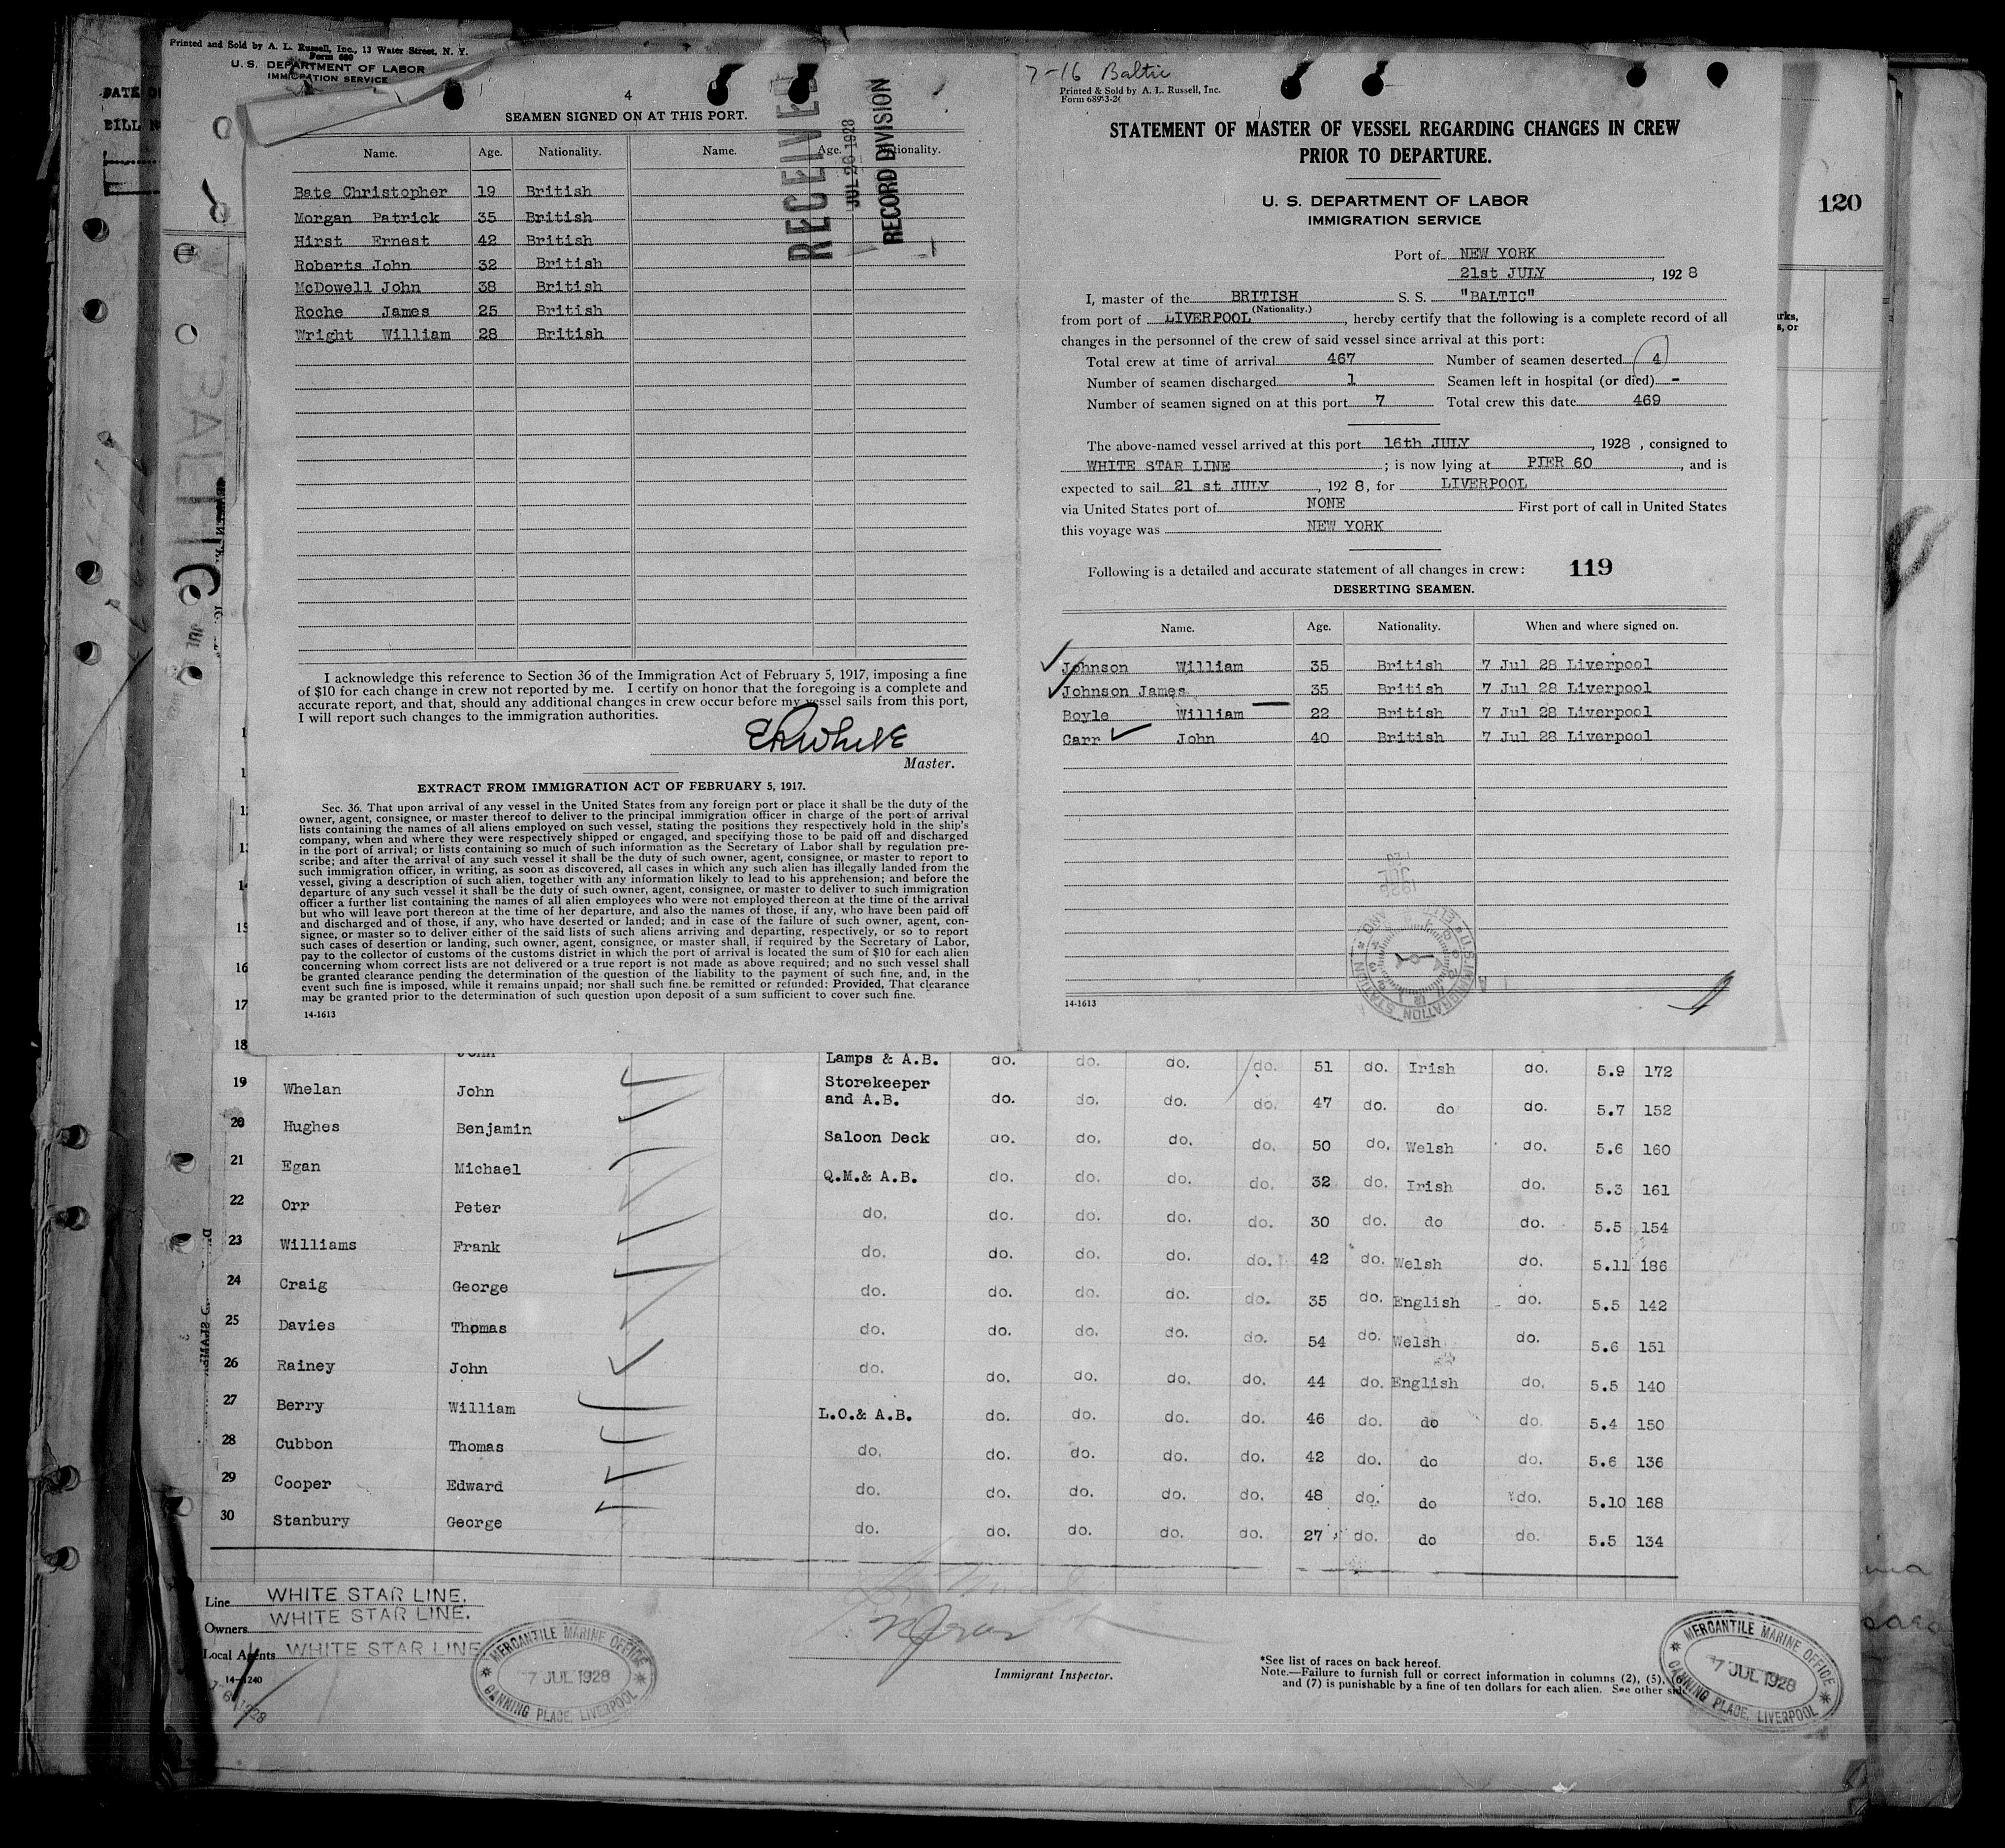 Printed and Sold by A. L. Russell, Inc., 13 Water Street, N. Y.
Form 680
U. S. DEPARTMENT OF LABOR
IMMIGRATION SERVICE
4
SEAMEN SIGNED ON AT THIS PORT.
Name. Age. Nationality. Name. Age. Nationality.
RECEIVED
JUL 26 1928
RECORD DIVISION
Bate Christopher 19 British
Morgan Patrick 35 British
Hirst Ernest 42 British
Roberts John 32 British
McDowell John 38 British
Roche James 25 British
Wright William 28 British
I acknowledge this reference to Section 36 of the Immigration Act of February 5, 1917, imposing a fine
of $10 for each change in crew not reported by me. I certify on honor that the foregoing is a complete and
accurate report, and that, should any additional changes in crew occur before my vessel sails from this port,
I will report such changes to the immigration authorities.
Master.
EXTRACT FROM IMMIGRATION ACT OF FEBRUARY 5, 1917.
Sec. 36. That upon arrival of any vessel in the United States from any foreign port or place it shall be the duty of the
owner, agent, consignee, or master thereof to deliver to the principal immigration officer in charge of the port of arrival
lists containing the names of all aliens employed on such vessel, stating the positions they respectively hold in the ship's
company, when and where they were respectively shipped or engaged, and specifying those to be paid off and discharged
in the port of arrival; or lists containing so much of such information as the Secretary of Labor shall by regulation pre-
scribe; and after the arrival of any such vessel it shall be the duty of such owner, agent, consignee, or master to report to
such immigration officer, in writing, as soon as discovered, all cases in which any such alien has illegally landed from the
vessel, giving a description of such alien, together with any information likely to lead to his apprehension; and before the
departure of any such vessel it shall be the duty of such owner, agent, consignee, or master to deliver to such immigration
officer a further list containing the names of all alien employees who were not employed thereon at the time of the arrival
but who will leave port thereon at the time of her departure, and also the names of those, if any, who have been paid off
and discharged and of those, if any, who have deserted or landed; and in case of the failure of such owner, agent, con-
signee, or master so to deliver either of the said lists of such aliens arriving and departing, respectively, or so to report
such cases of desertion or landing, such owner, agent, consignee, or master shall, if required by the Secretary of Labor,
pay to the collector of customs of the customs district in which the port of arrival is located the sum of $10 for each alien
concerning whom correct lists are not delivered or a true report is not made as above required; and no such vessel shall
be granted clearance pending the determination of the question of the liability to the payment of such fine, and, in the
event such fine is imposed, while it remains unpaid; nor shall such fine be remitted or refunded: Provided, That clearance
may be granted prior to the determination of such question upon deposit of a sum sufficient to cover such fine.
14-1613
7-16 Baltic
Printed & Sold by A. L. Russell, Inc.
STATEMENT OF MASTER OF VESSEL REGARDING CHANGES IN CREW
PRIOR TO DEPARTURE.
U. S. DEPARTMENT OF LABOR
IMMIGRATION SERVICE
120
Port of NEW YORK
21st JULY, 1928
I, master of the BRITISH S. S. "BALTIC"
(Nationality.)
from port of LIVERPOOL, hereby certify that the following is a complete record of all
changes in the personnel of the crew of said vessel since arrival at this port:
Total crew at time of arrival 467 Number of seamen deserted 4
Number of seamen discharged 1 Seamen left in hospital (or died) -
Number of seamen signed on at this port 7 Total crew this date 469
The above-named vessel arrived at this port 16th JULY, 1928, consigned to
WHITE STAR LINE; is now lying at PIER 60, and is
expected to sail 21 st JULY, 192 8, for LIVERPOOL
via United States port of NONE First port of call in United States
this voyage was NEW YORK
Following is a detailed and accurate statement of all changes in crew: 119
DESERTING SEAMEN.
Name. Age. Nationality. When and where signed on.
Johnson William 35 British 7 Jul 28 Liverpool
Johnson James 35 British 7 Jul 28 Liverpool
Boyle William 22 British 7 Jul 28 Liverpool
Carr John 40 British 7 Jul 28 Liverpool
14-1613
18 John Lamps & A.B. do. do. do. do. 51 do. Irish do. 5.9 172
19 Whelan John Storekeeper
and A.B. do. do. do. do. 47 do. do do. 5.7 152
20 Hughes Benjamin Saloon Deck do. do. do. do. 50 do. Welsh do. 5.6 160
21 Egan Michael Q.M.& A.B. do. do. do. do. 32 do. Irish do. 5.3 161
22 Orr Peter do. do. do. do. do. 30 do. do do. 5.5 154
23 Williams Frank do. do. do. do. do. 42 do. Welsh do. 5.11 186
24 Craig George do. do. do. do. do. 35 do. English do. 5.5 142
25 Davies Thomas do. do. do. do. do. 54 do. Welsh do. 5.6 151
26 Rainey John do. do. do. do. do. 44 do. English do. 5.5 140
27 Berry William L.O.& A.B. do. do. do. do. 46 do. do do. 5.4 150
28 Cubbon Thomas do. do. do. do. do. 42 do. do do. 5.6 136
29 Cooper Edward do. do. do. do. do. 48 do. do do. 5.10 168
30 Stanbury George do. do. do. do. do. 27 do. do do. 5.5 134
Line WHITE STAR LINE.
Owners WHITE STAR LINE.
Local Agents WHITE STAR LINE
14-1240
MERCANTILE MARINE OFFICE
7 JUL 1928
CANNING PLACE, LIVERPOOL
Immigrant Inspector.
*See list of races on back hereof.
Note.—Failure to furnish full or correct information in columns (2), (5),
and (7) is punishable by a fine of ten dollars for each alien. See other
MERCANTILE MARINE OFFICE
7 JUL 1928
CANNING PLACE, LIVERPOOL